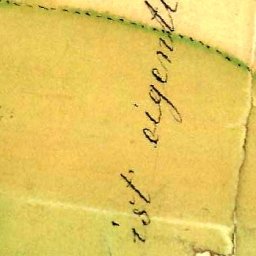 ist eigentl